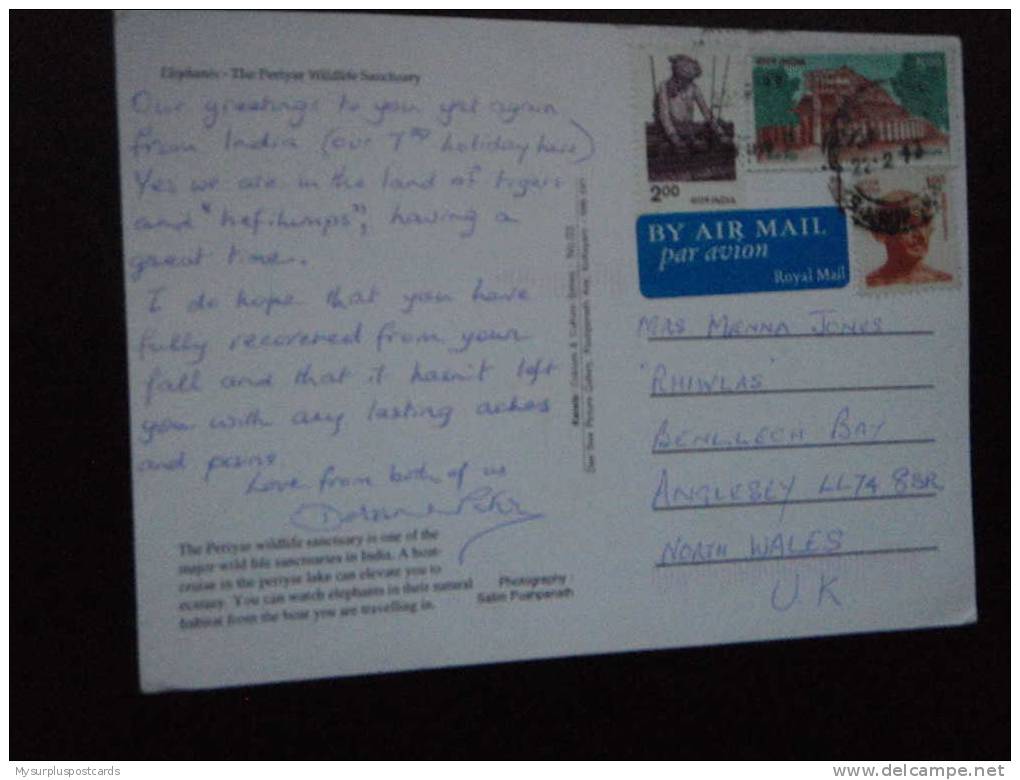 Elephants - The Periyar Wildlife Sanctuary
Our greetings to you yet again
from India (our 7th holiday here)
Yes we are in the land of tigers
and "hefilumps", having a
great time.
I do hope that you have
fully recovered from your
fall and that it hasn't left
you with any lasting aches
and pains
Love from both of us
Peter
The Periyar wildlife sanctuary is one of the
major wild life sanctuaries in India. A boat-
cruise in the periyar lake can elevate you to
ecstasy. You can watch elephants in their natural
habitat from the boat you are travelling in.
Photography :
Sabin Pushpanath
Kerala Colours & Culture Series No.03
Dee Bee Picture Gallery,
2.00
INDIA
INDIA
BY AIR MAIL
par avion
Royal Mail
MRS MENNA JONES
'RHIWLAS'
BENLLECH BAY
ANGLESEY LL74 8BR
NORTH WALES
U.K
Mysurpluspostcards
delcampe.net